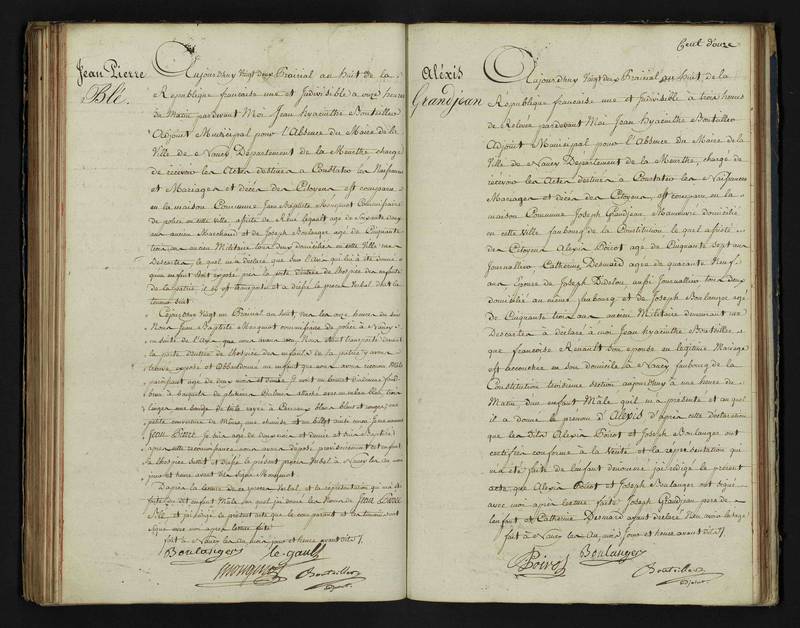 Jean Pierre
Blé.
Aujourd'huy Vingt deux Prairial an huit de la
République francaise une et Indivisible à onze heures
du Matin pardevant Moi Jean hyacinthe Bouteiller
Adjoint Municipal pour l'Absence du Maire de la
Ville de Nancy Département de la Meurthe chargé
de recevoir les Actes destinés à Constater les Naissances
et Mariages et décès des Citoyens est comparu
en la maison Commune Jean Baptiste Monginot Commissaire
de police en cette ville, assisté de Réné legault agé de Soixante deux
ans ancien Marchand et de Joseph Boulanger agé de Cinquante
trois ans ancien Militaire tous deux domiciliés en cette Ville rue
Descartes, le quel m'a déclaré que sur l'avis qui lui a été donné
qu'un enfant était exposé près la porte d'entrée de l'hospice des enfants
de la patrie, il s'y est transporté et a dressé le procès Verbal dont la
teneur suit
Cejourd'huy Vingt un Prairial an huit, vers les onze heures du soir
Nous Jean Baptiste Monginot commissaire de police à Nancy
en suite de l'avis que nous avons eu, Nous étant transporté devant
la porte d'entrée de l'hospice des enfants de la patrie y avons
trouvé exposé et abandonné un enfant que nous avons reconnu Mâle
paroissant agé de deux mois et demi
petite couverture de Même, une chemise et un billet
Jean Pierre
après cette reconnoissance nous avons déposé provisoirement cet enfant
à l'hospice susdit et dressé le présent procès Verbal à Nancy les an mois
jour et heure avant dits Signé Monginot
D'après la lecture de ce procès Verbal et la représentation qui m'a été
faite du dit enfant Mâle au quel j'ai donné les Noms de Jean Pierre
Blé, et j'ai rédigé le présent acte que le comparant et les témoins ont
Signé avec moi après lecture faite
fait à Nancy les an, mois jour et heure avant dits ./.
Boulanger le gault
Monginot Bouteiller
Adjoint.
Cent d'onze
Aléxis
Grandjean
Aujourd'huy Vingt deux Prairial an huit de la
République francaise une et Indivisible à trois heures
de Relevée pardevant Moi Jean hyacinthe Bouteiller
Adjoint Municipal pour l'Absence du Maire de la
Ville de Nancy Département de la Meurthe, chargé de
recevoir les Actes destinés à Constater les Naissances
Mariages et décès des Citoyens, est comparu en la
maison Commune Joseph Grandjean Manœuvre domicilié
en cette ville faubourg de la Constitution le quel assisté
des Citoyens Alexis Poirot agé de Cinquante sept ans
Journallier, Catherine Desmard agée de quarante Neuf
ans Epouse de Joseph Didelon, aussi Journallier tous deux
domiciliés au même faubourg et de Joseph Boulanger agé
de Cinquante trois ans ancien Militaire demeurant rue
Descartes a déclaré à moi Jean hyacinthe Bouteiller
que francoise Renault son épouse en légitime Mariage
est accouchée en son domicile à Nancy faubourg de la
Constitution troisieme section aujourd'huy à une heure du
Matin d'un enfant Mâle qu'il m'a présenté et au quel
il a donné le prénom d'Alexis d'après cette Déclaration
que les dits Alexis Poirot et Joseph Boulanger ont
certifiée conforme à la Vérité et la représentation qui
m'a été faite de l'enfant dénommé j'ai rédigé le présent
acte que Alexis Poirot et Joseph Boulanger ont signé
avec moi après lecture faite Joseph Grandjean père de
l'enfant et Catherine Desmard ayant déclaré n'en avoir l'usage
fait à Nancy les an, mois jour et heure avant dits ./.
Poirot Boulanger
Bouteiller
Adjoint.